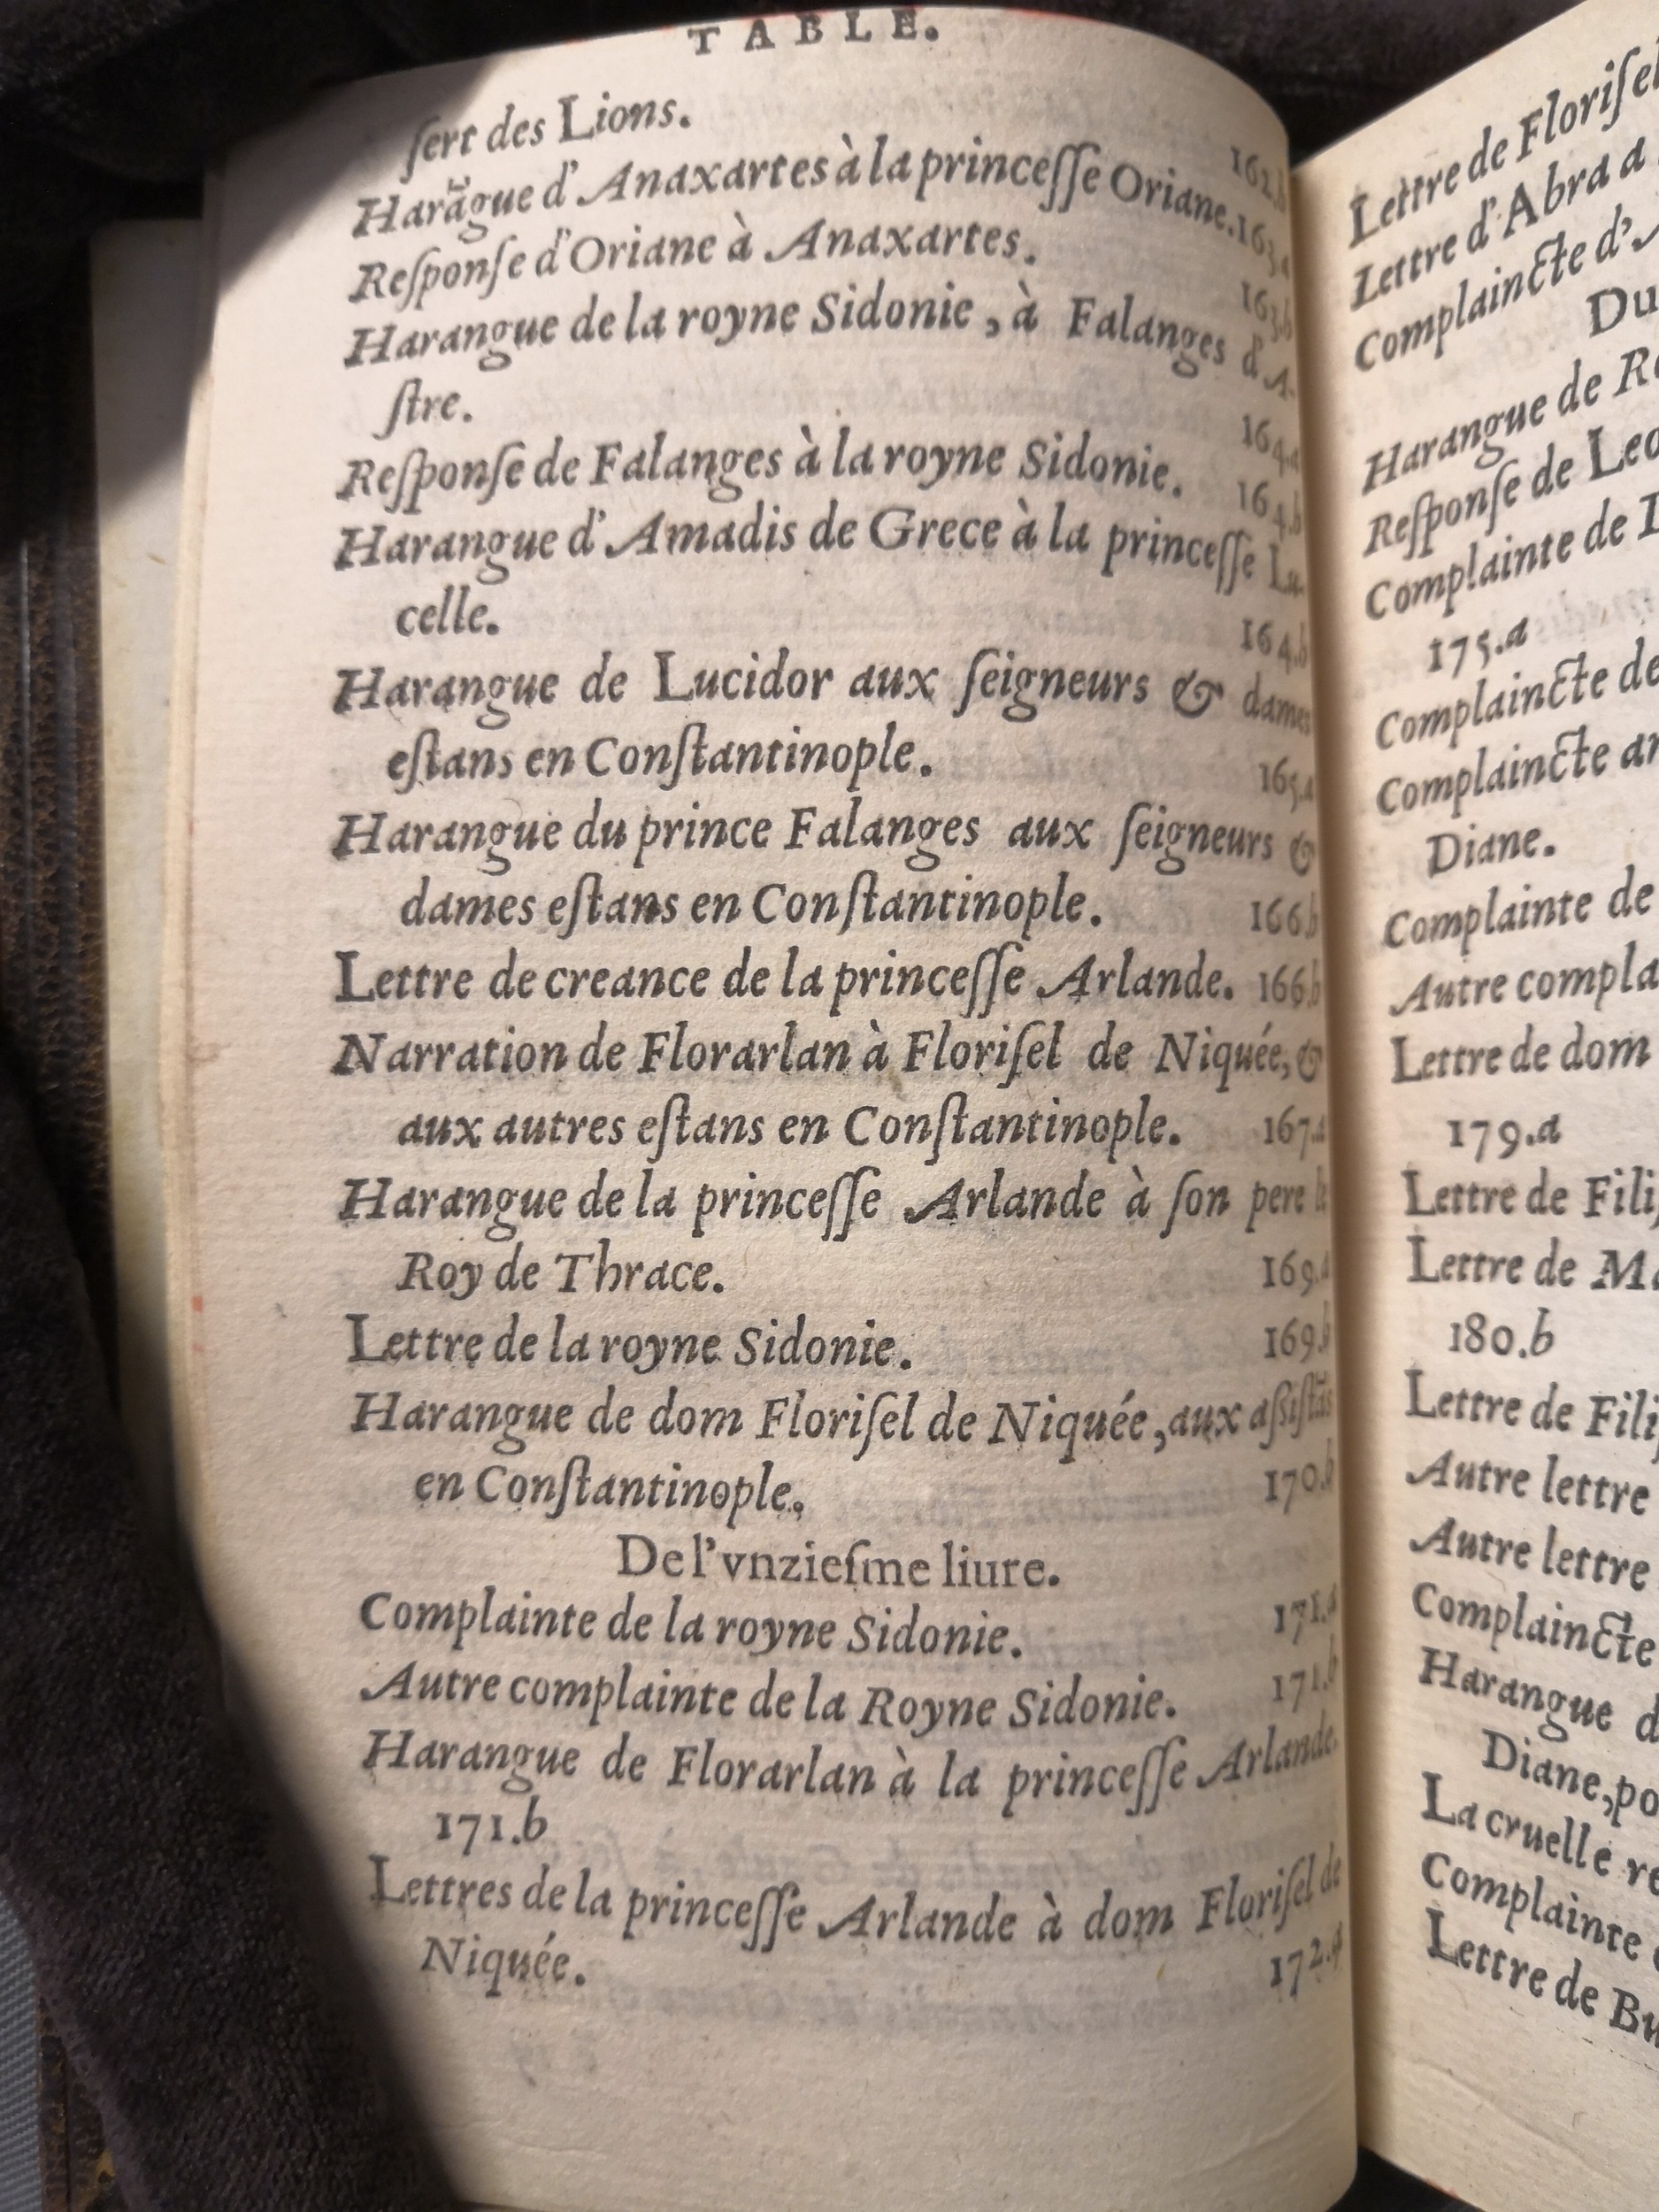 TABLE.
ſert des Lions. 162.b
Harãgue d'Anaxartes à la princeſſe Oriane. 163.a
Reſponſe d'Oriane à Anaxartes. 163.b
Harangue de la royne Sidonie, à Falanges d'A-
ſtre. 164.a
Reſponſe de Falanges à la royne Sidonie. 164.b
Harangue d'Amadis de Grece à la princeſſe Lu-
celle. 164.b
Harangue de Lucidor aux ſeigneurs & dames
eſtans en Conſtantinople. 165.a
Harangue du prince Falanges aux ſeigneurs &
dames eſtans en Conſtantinople. 166.b
Lettre de creance de la princeſſe Arlande. 166.b
Narration de Florarlan à Floriſel de Niquée, &
aux autres eſtans en Conſtantinople. 167.a
Harangue de la princeſſe Arlande à ſon pere le
Roy de Thrace. 169.a
Lettre de la royne Sidonie. 169.b
Harangue de dom Floriſel de Niquée, aux aſſiſtãs
en Conſtantinople. 170.b
De l'vnzieſme liure.
Complainte de la royne Sidonie. 171.a
Autre complainte de la Royne Sidonie. 171.b
Harangue de Florarlan à la princeſſe Arlande.
171.b
Lettres de la princeſſe Arlande à dom Floriſel de
Niquée. 172.a
Lettre de Floriſel
Lettre d'Abra a
Complaincte d'A
Du
Harangue de Ro
Reſponſe de Leo
Complainte de
175.a
Complaincte de
Complaincte
Diane.
Complainte de
Autre compla
Lettre de dom
179.a
Lettre de Fili
Lettre de Ma
180.b
Lettre de Fili
Autre lettre
Autre lettre
Complaincte
Harangue d
Diane, po
La cruelle re
Complainte
Lettre de Bu